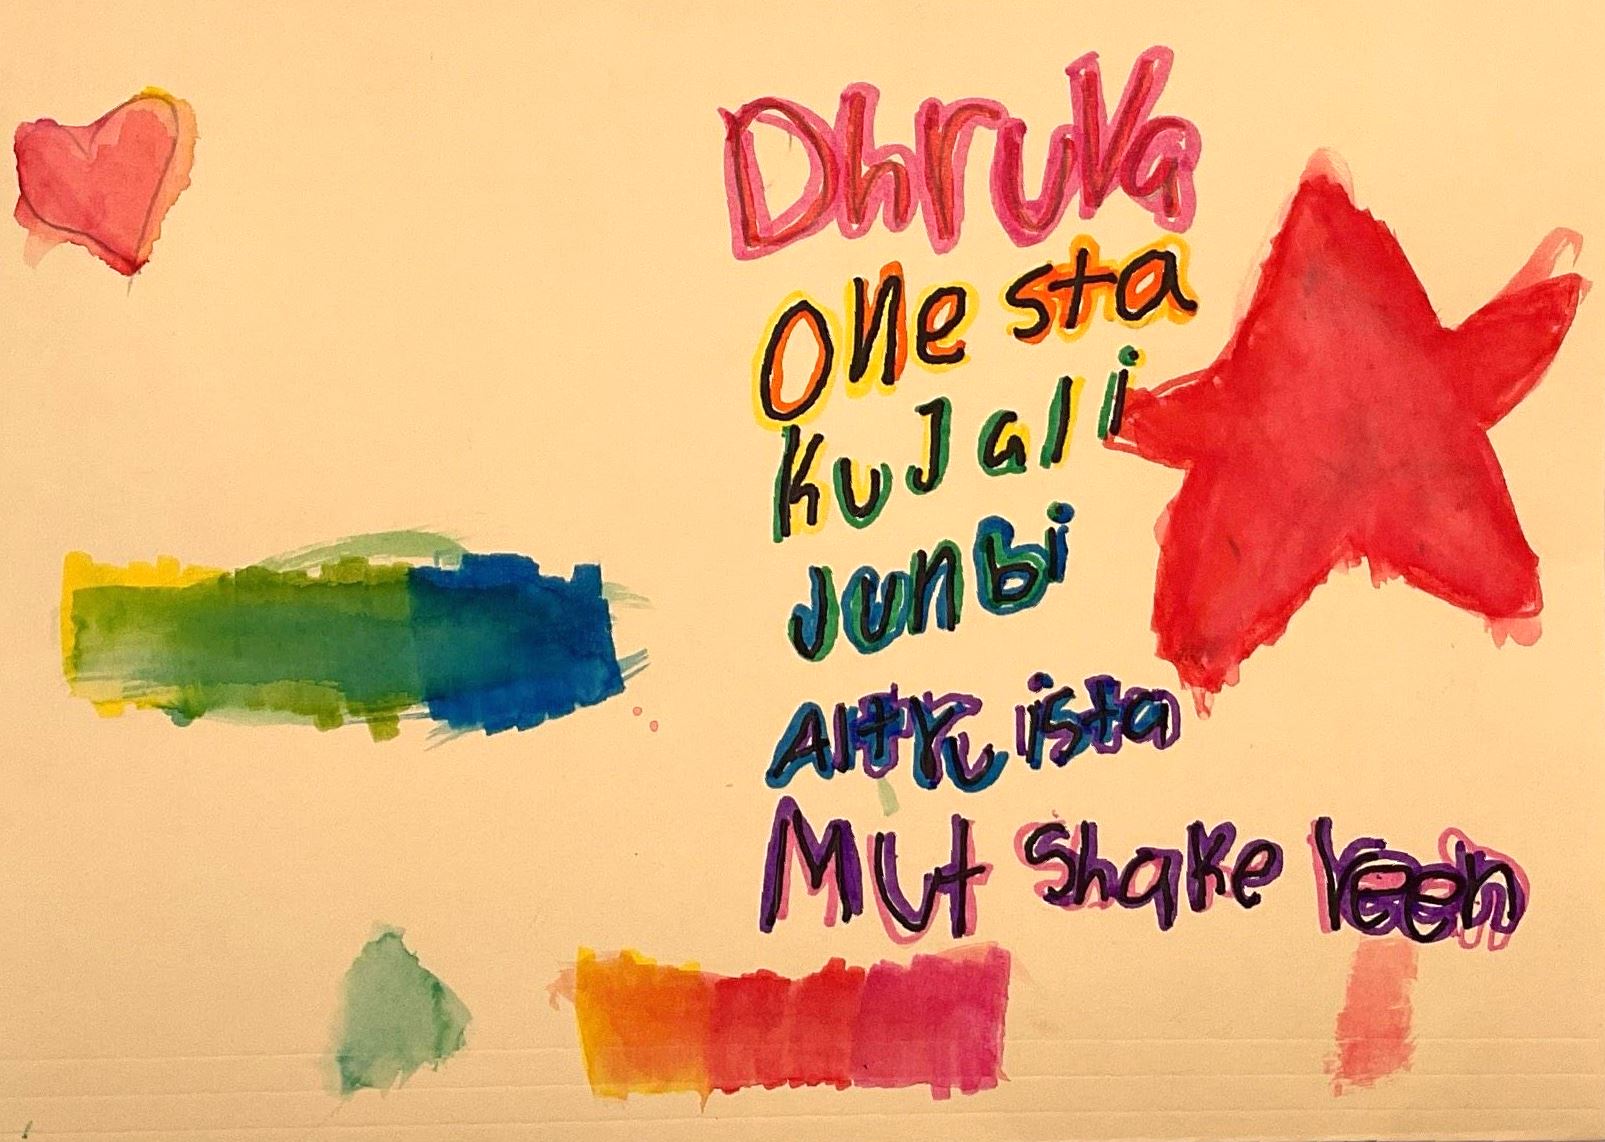 Dhruva
One sta
KuJali
Junbi
Altruista
Mut Shake reen